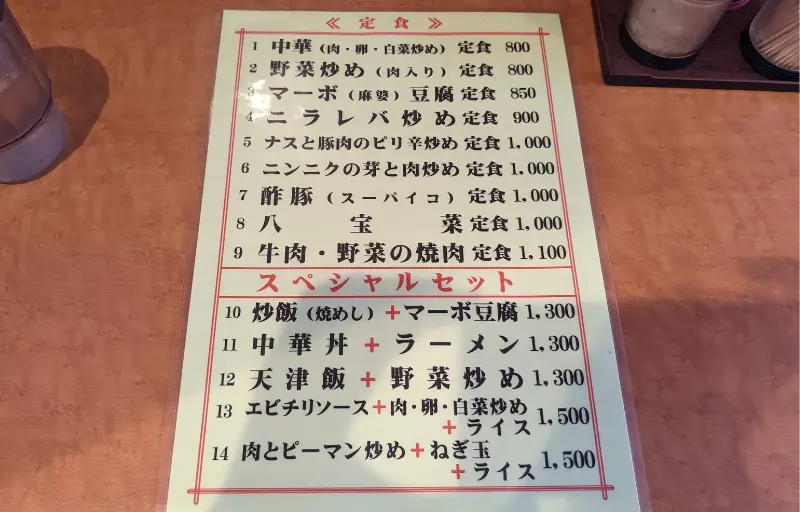 《 定 食 》
1 中華（肉・卵・白菜炒め）定食 800
2 野菜炒め（肉入り）定食 800
3 マーボ（麻婆）豆腐定食 850
4 ニラレバ炒め定食 900
5 ナスと豚肉のピリ辛炒め定食 1,000
6 ニンニクの芽と肉炒め定食 1,000
7 酢豚（スーパイコ）定食 1,000
8 八宝菜定食 1,000
9 牛肉・野菜の焼肉定食 1,100
スペシャルセット
10 炒飯（焼めし）+マーボ豆腐 1,300
11 中華丼+ラーメン 1,300
12 天津飯+野菜炒め 1,300
13 エビチリソース+肉・卵・白菜炒め
+ライス 1,500
14 肉とピーマン炒め+ねぎ玉
+ライス 1,500